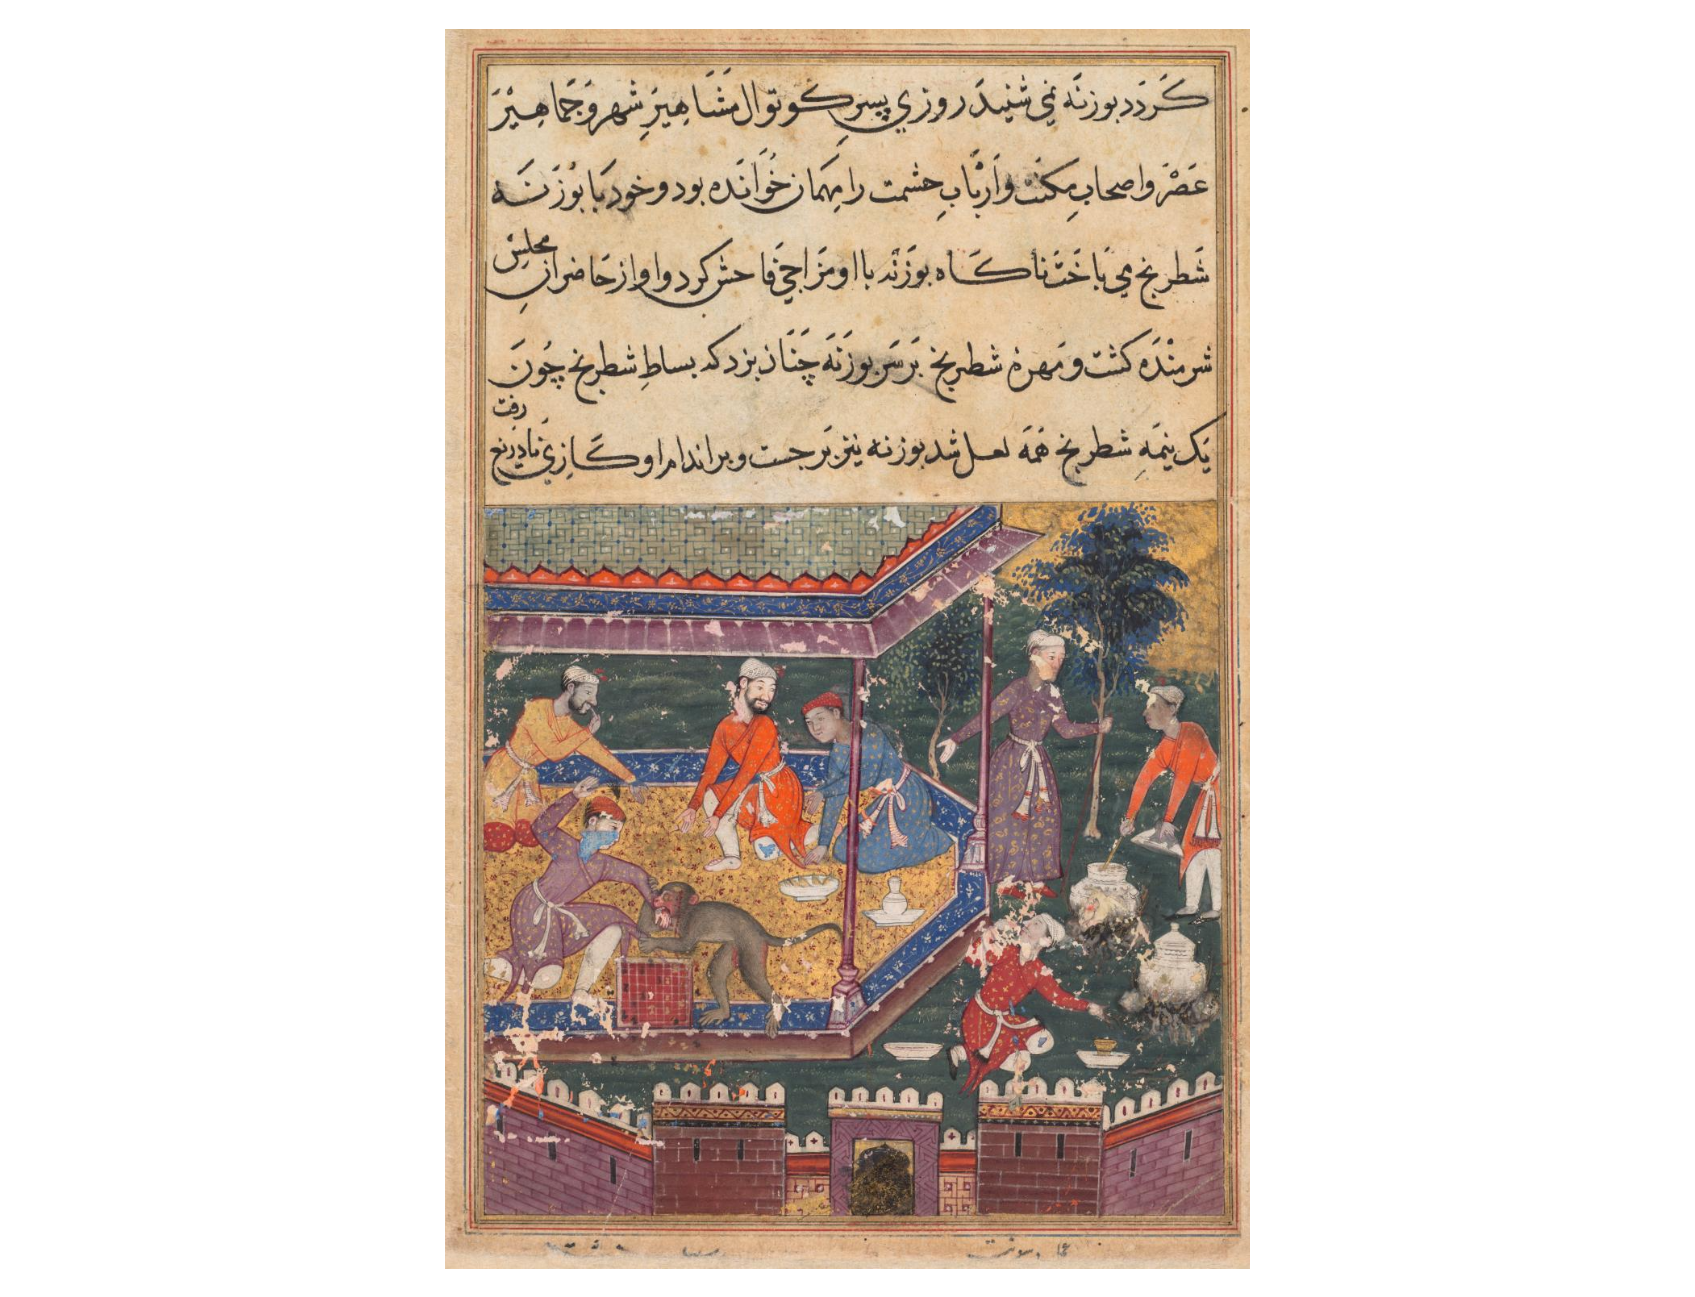 كَردَد بوزنَه نمي شنيدَ روزي پسرِ كوتوال مَشَاهيرِ شهر وَجَماهِيْرَ
عَصْرَ واصحابِ مِكنَت وَاَرْبَابِ حِشمت را مِهمَان خُوَانَده بود و خود بَا بُوزَنَه
شَطرنج مي بَاخَتْ ناكَاه بوزَنَه با او مَزَاحِي فَاحش كرد و او از حَاضرانِ مجلِسْ
شرمنْدَه كشت و مَهرهٔ شطرنج بَر سَرِ بوزَنَه چَنَان بزد كه بساطِ شطرنج چُونَ
يَك نيمَهِ شطرنج هَمَه لعل شد بوزنه نيز بَرجست و بر اندام او كَازِي نَا دِريغ رفت